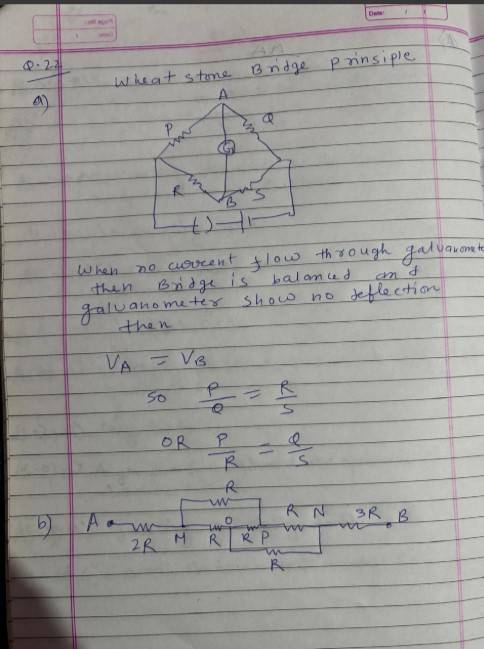 Date:
Q.27
Wheat stone Bridge prinsiple
a)
A
P
Q
G
R
B
S
( )
When no current flow through galvanomete
then Bridge is balanced and
galvanometer show no deflection
then
VA = VB
so P/Q = R/S
OR P/R = Q/S
R
b) A 2R M R O R P R N 3R B
R